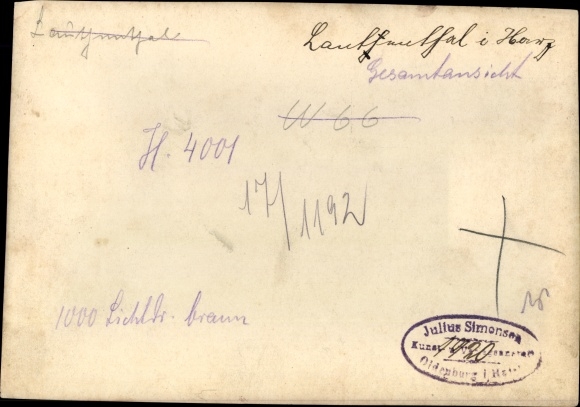 Lautenthal
Lautenthal i Harz
Gesamtansicht
W 66
H. 4001
17/1192
1000 Lichtdr. braun
Julius Simonsen
Kunst
1920
Oldenburg i Holst